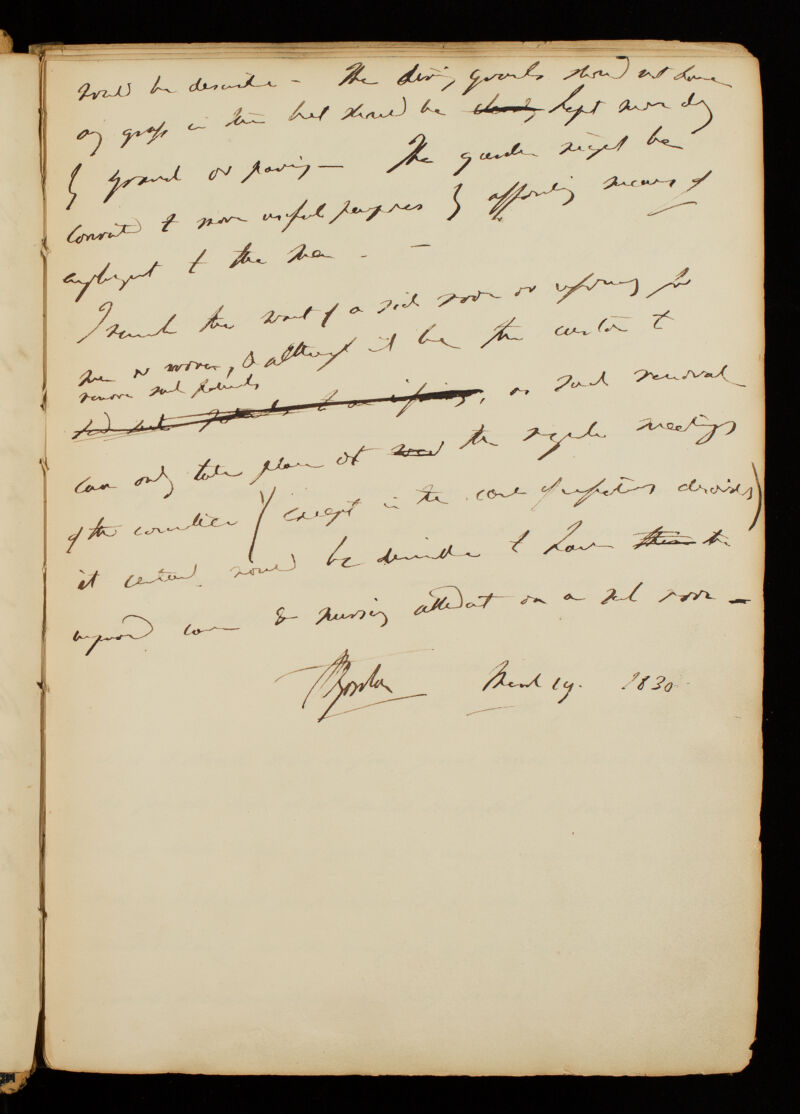 would be desirable – The airing grounds should not have
any grass in them but should be kept more dry
by gravel or paving – The garden might be
converted to more useful purposes by affording means of
employment to the men. –
I remark the want of a sick room or infirmary for
men or women, & although it be the custom to
remove such patients
sick patients to an infirmary, as such removal
can only take place at the regular meetings
of the committee (except in the case of infectious disorders)
it certainly would be desirable to have the
improved care & nursing attendant on a sick room –
Gordon March 19. 1830